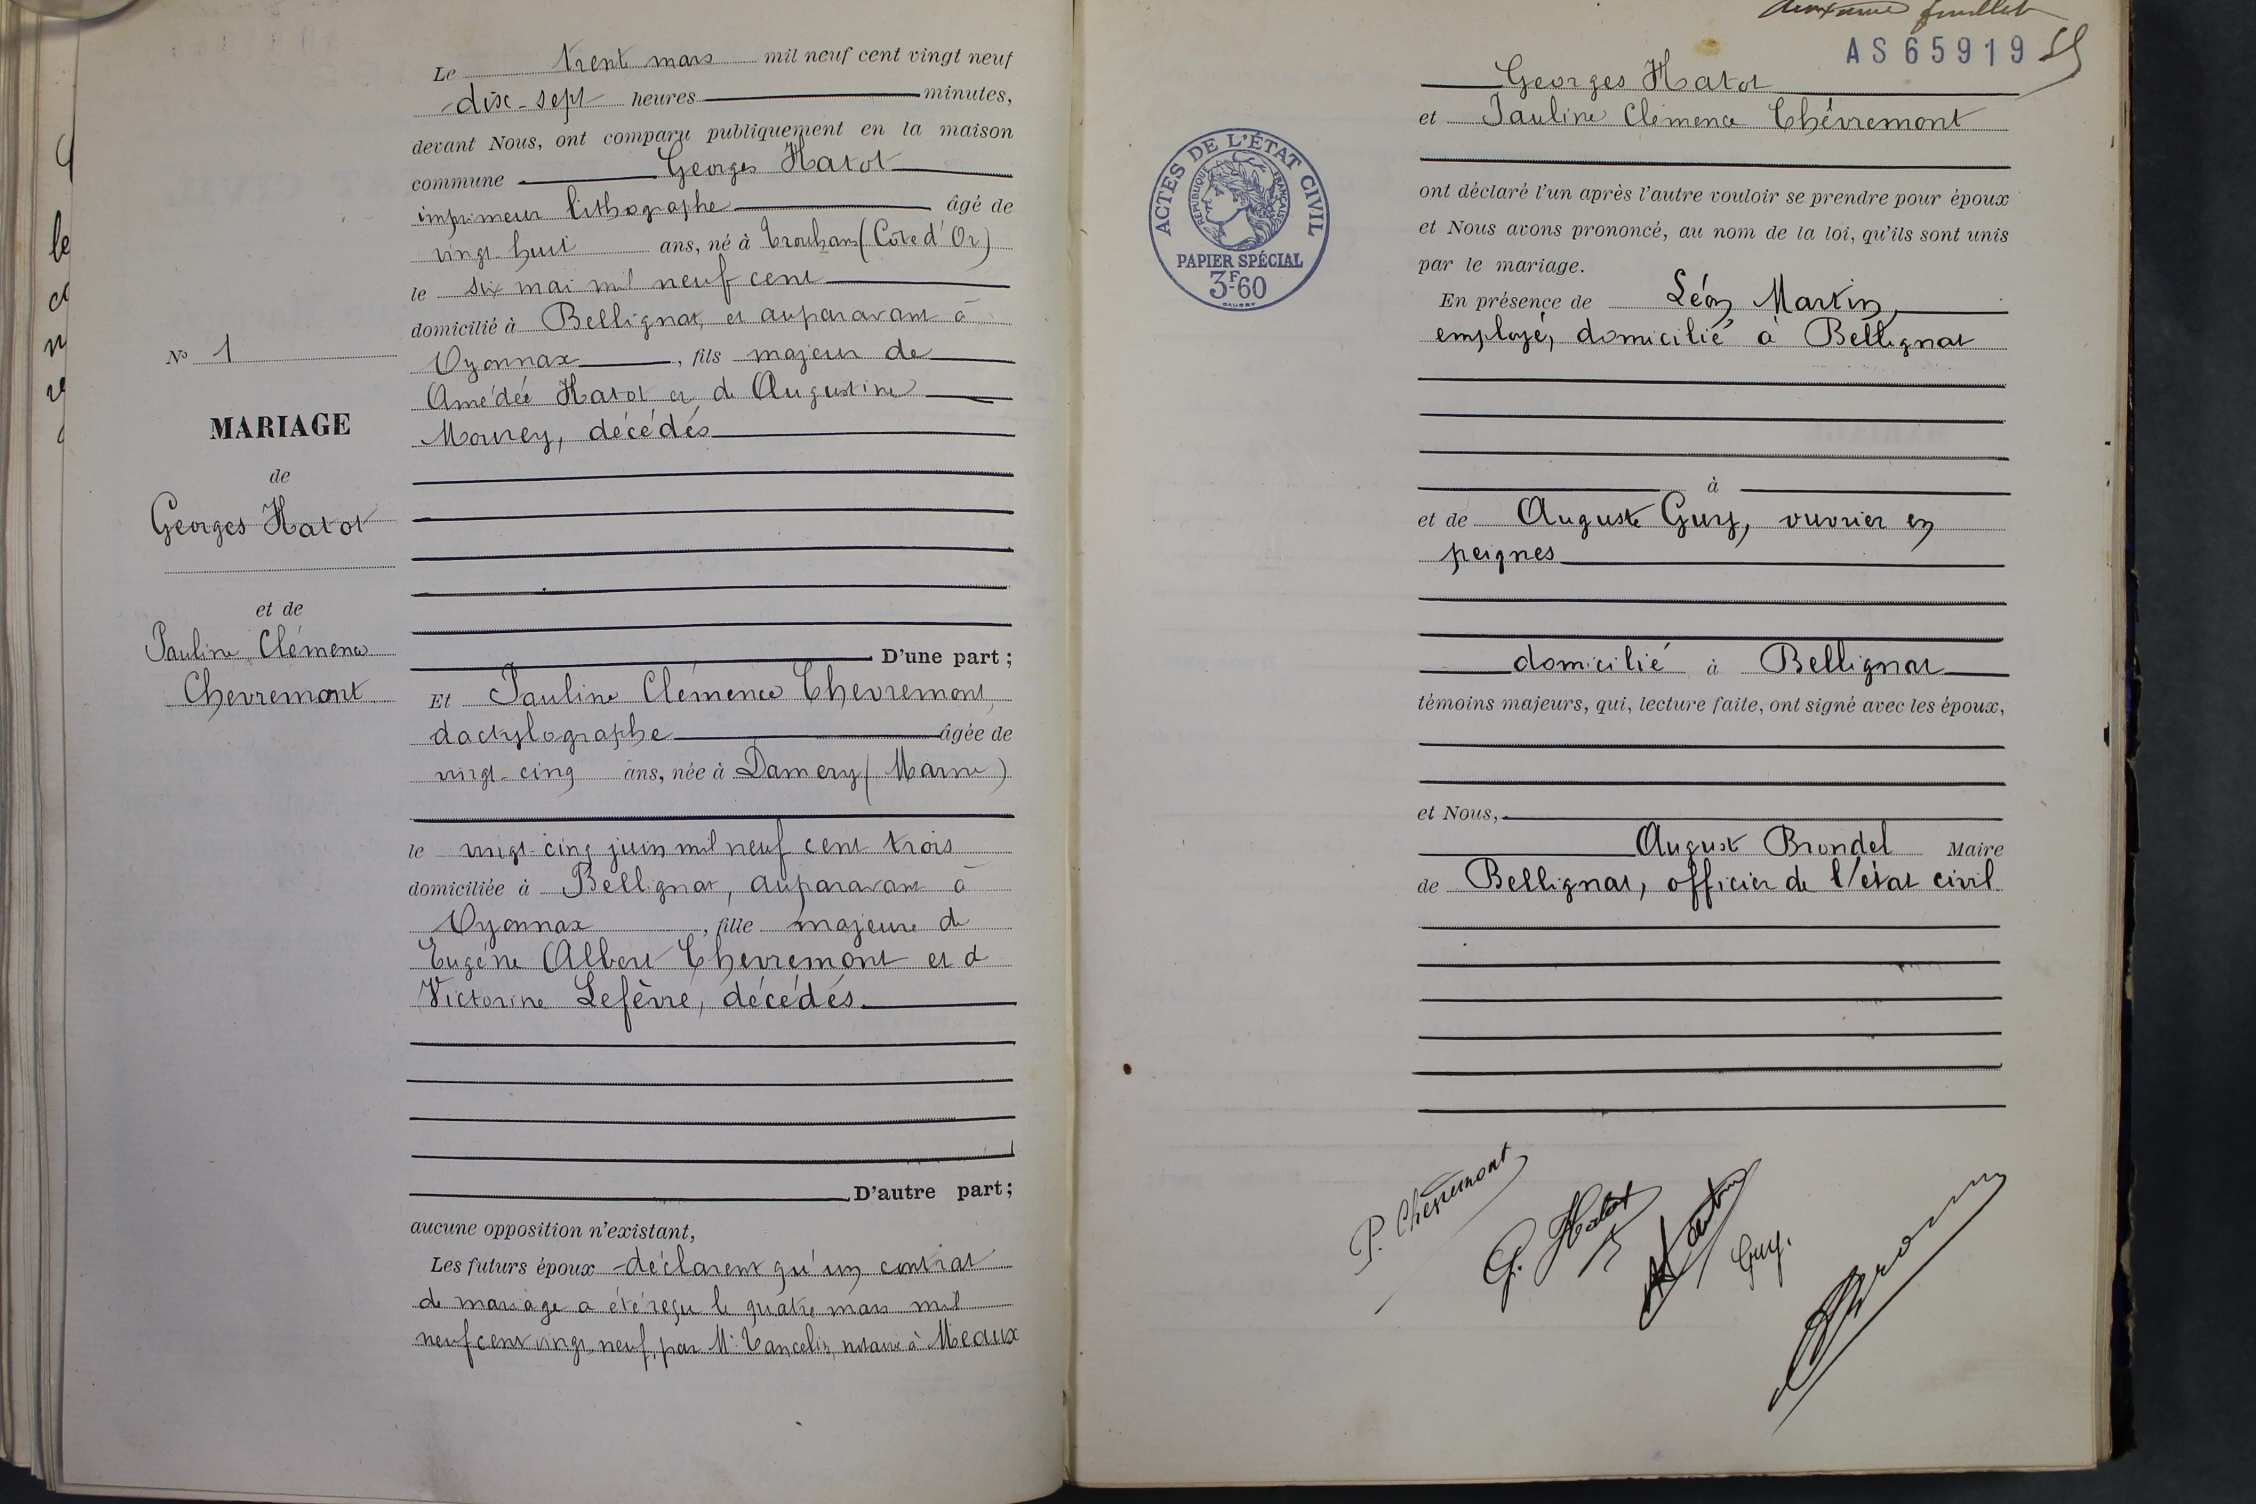 Le trente mars mil neuf cent vingt neuf
dix-sept heures minutes,
devant Nous, ont comparu publiquement en la maison
commune Georges Hatot
imprimeur lithographe âgé de
vingt huit ans, né à Trouhans (Côte d'Or)
le six mai mil neuf cent
domicilié à Bellignat, et auparavant à
Oyonnax, fils majeur de
Amédée Hatot et de Augustine
Mourey, décédés
No 1
MARIAGE
de
Georges Hatot
et de
Pauline Clémence
Chevremont
D'une part;
Et Pauline Clémence Chevremont,
dactylographe âgée de
vingt-cinq ans, née à Damery (Marne)
le vingt-cinq juin mil neuf cent trois
domiciliée à Bellignat, auparavant à
Oyonnax, fille majeure de
Eugène Albert Chevremont et de
Victorine Lefèvre, décédés
D'autre part;
aucune opposition n'existant,
Les futurs époux déclarent qu'un contrat
de mariage a été reçu le quatre mars mil
neuf cent vingt neuf, par Me Tancelin, notaire à Meaux
deuxième feuillet
AS65919
ACTES DE L'ÉTAT CIVIL
RÉPUBLIQUE FRANÇAISE
PAPIER SPÉCIAL
3F60
Georges Hatot
et Pauline Clémence Chévremont
ont déclaré l'un après l'autre vouloir se prendre pour époux
et Nous avons prononcé, au nom de la loi, qu'ils sont unis
par le mariage.
En présence de Léon Martin,
employé, domicilié à Bellignat
à
et de Auguste Guy, ouvrier en
peignes
domicilié à Bellignat
témoins majeurs, qui, lecture faite, ont signé avec les époux,
et Nous,
August Brondel Maire
de Bellignat, officier de l'état civil
P. Chevremont
G. Hatot
Guy.